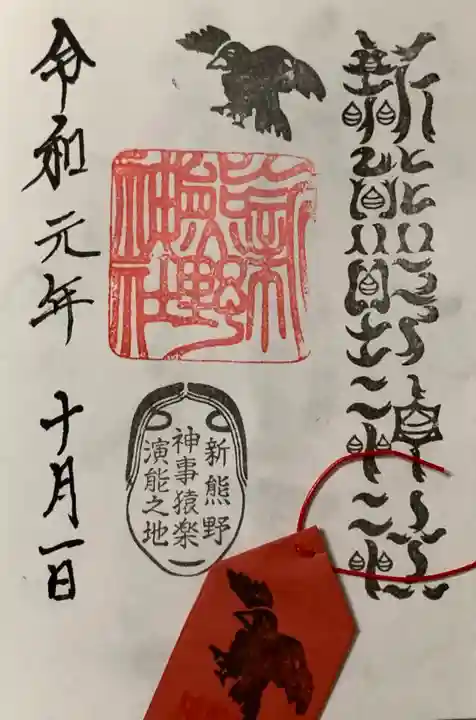 新熊野神社
新熊野
神事猿楽
演能之地
令和元年十月一日